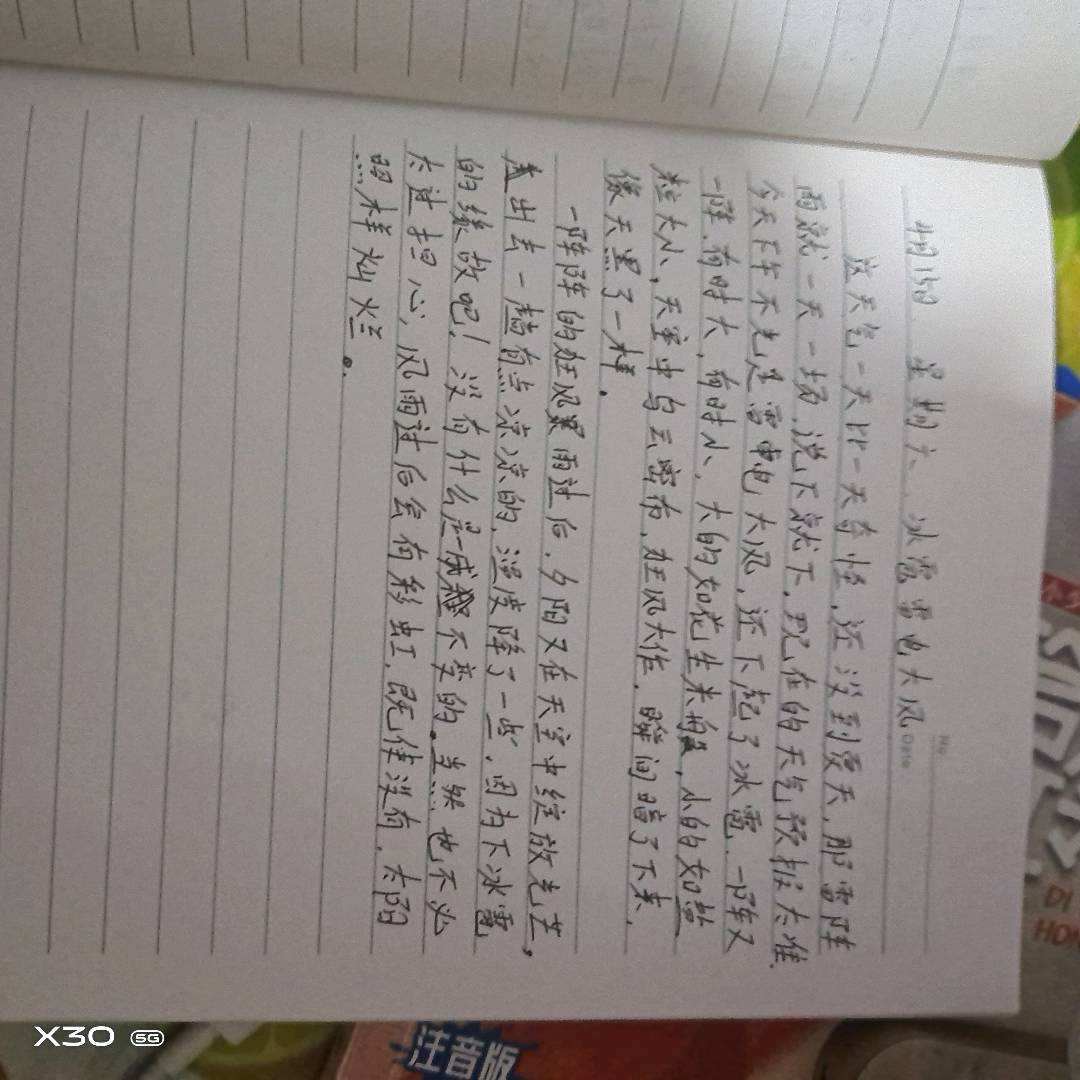 4月15日 星期六 冰雹雷电大风
No
Date
这天气一天比一天奇怪,还没到夏天,那雷阵
雨就一天一场,说下就下,现在的天气预报太准,
今天下午不光是雷电大风,还下起了冰雹,一阵又
一阵,有时大,有时小,大的如花生米,小的如盐
粒大小,天空中乌云密布,狂风大作,瞬间暗了下来,
像天黑了一样。
一阵阵的狂风暴雨过后,夕阳又在天空中绽放光芒,
出去一有点凉凉的,温度降了一些,因为下冰雹
的缘故吧!没有什么是一成不变的。当然也不必
太过担心,风雨过后会有彩虹,既使没有,太阳
照样灿烂。
DI
HON
注音版
X30 5G